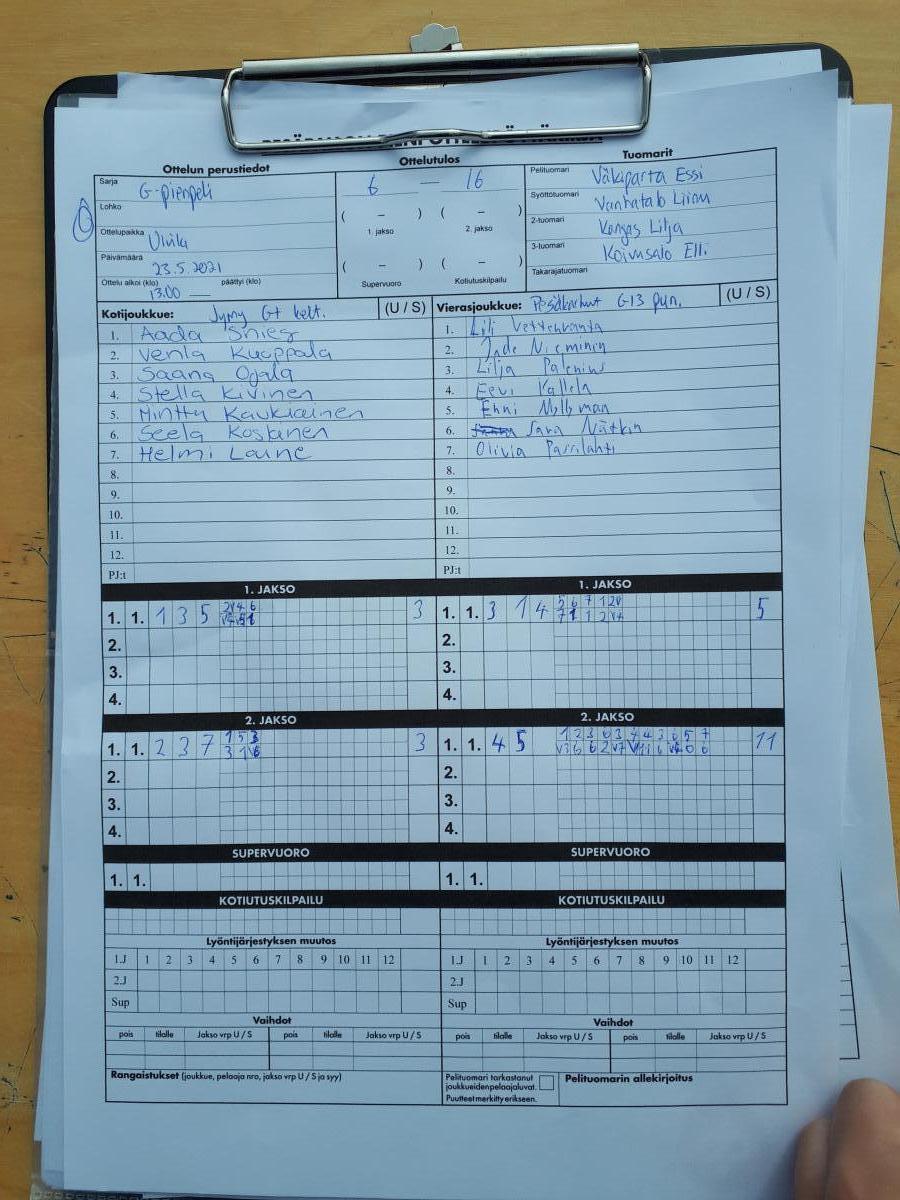 Ottelun perustiedot
Ottelutulos
Tuomarit
Sarja G-pienpeli
Lohko
Ottelupaikka Ulvila
Päivämäärä 23.5.2021
Ottelu alkoi (klo) 13.00 päättyi (klo)
6 — 16
( – ) ( – )
1. jakso 2. jakso
( – ) ( – )
Supervuoro Kotiutuskilpailu
Pelituomari Väkiparta Essi
Syöttötuomari Vanhatalo
2-tuomari Kangas Lilja
3-tuomari Koivusalo Elli
Takarajatuomari
Kotijoukkue: Jymy G+ kelt. (U / S)
1. Aada
2. Venla Kuoppala
3. Saana Ojala
4. Stella Kivinen
5. Minttu Kaukiainen
6. Seela Koskinen
7. Helmi Laine
8.
9.
10.
11.
12.
PJ:t
Vierasjoukkue: Pesäkarhut G13 pun. (U / S)
1. Lilj Vettenranta
2. Jade Nieminen
3. Lilja Palenius
4. Eevi Kallela
5. Enni
6. Sara Nätkin
7. Olivia Passilahti
8.
9.
10.
11.
12.
PJ:t
1. JAKSO
1. 1. 1 3 5 3
2.
3.
4.
1. JAKSO
1. 1. 3 1 4 5
2.
3.
4.
2. JAKSO
1. 1. 2 3 7 3
2.
3.
4.
2. JAKSO
1. 1. 4 5 11
2.
3.
4.
SUPERVUORO
1. 1.
SUPERVUORO
1. 1.
KOTIUTUSKILPAILU
KOTIUTUSKILPAILU
Lyöntijärjestyksen muutos
1.J 1 2 3 4 5 6 7 8 9 10 11 12
2.J
Sup
Lyöntijärjestyksen muutos
1.J 1 2 3 4 5 6 7 8 9 10 11 12
2.J
Sup
Vaihdot
pois tilalle Jakso vrp U / S pois tilalle Jakso vrp U / S
Vaihdot
pois tilalle Jakso vrp U / S pois tilalle Jakso vrp U / S
Rangaistukset (joukkue, pelaaja nro, jakso vrp U / S ja syy)
Pelituomari tarkastanut
joukkueidenpelaajaluvat.
Puutteet merkitty erikseen.
Pelituomarin allekirjoitus